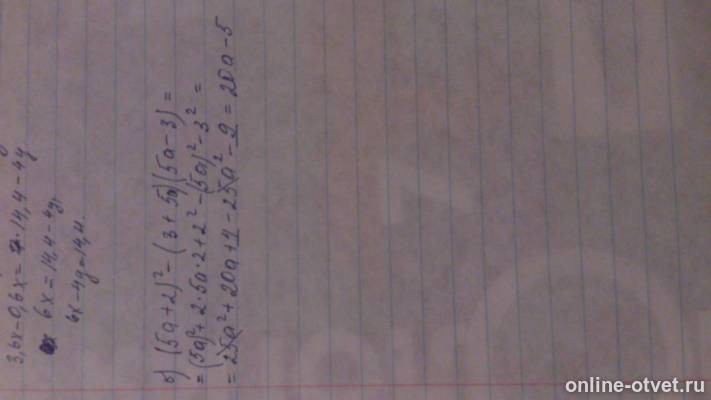 3,6x-0,6x= 14,4-4y
6x=14,4-4y,
6x-4y=14,4.
б) (5a+2)²-(3+5a)(5a-3)=
=(5a)²+2·5a·2+2²-(5a)²-3²=
=25a²+20a+4-25a²-9=20a-5
online-otvet.ru